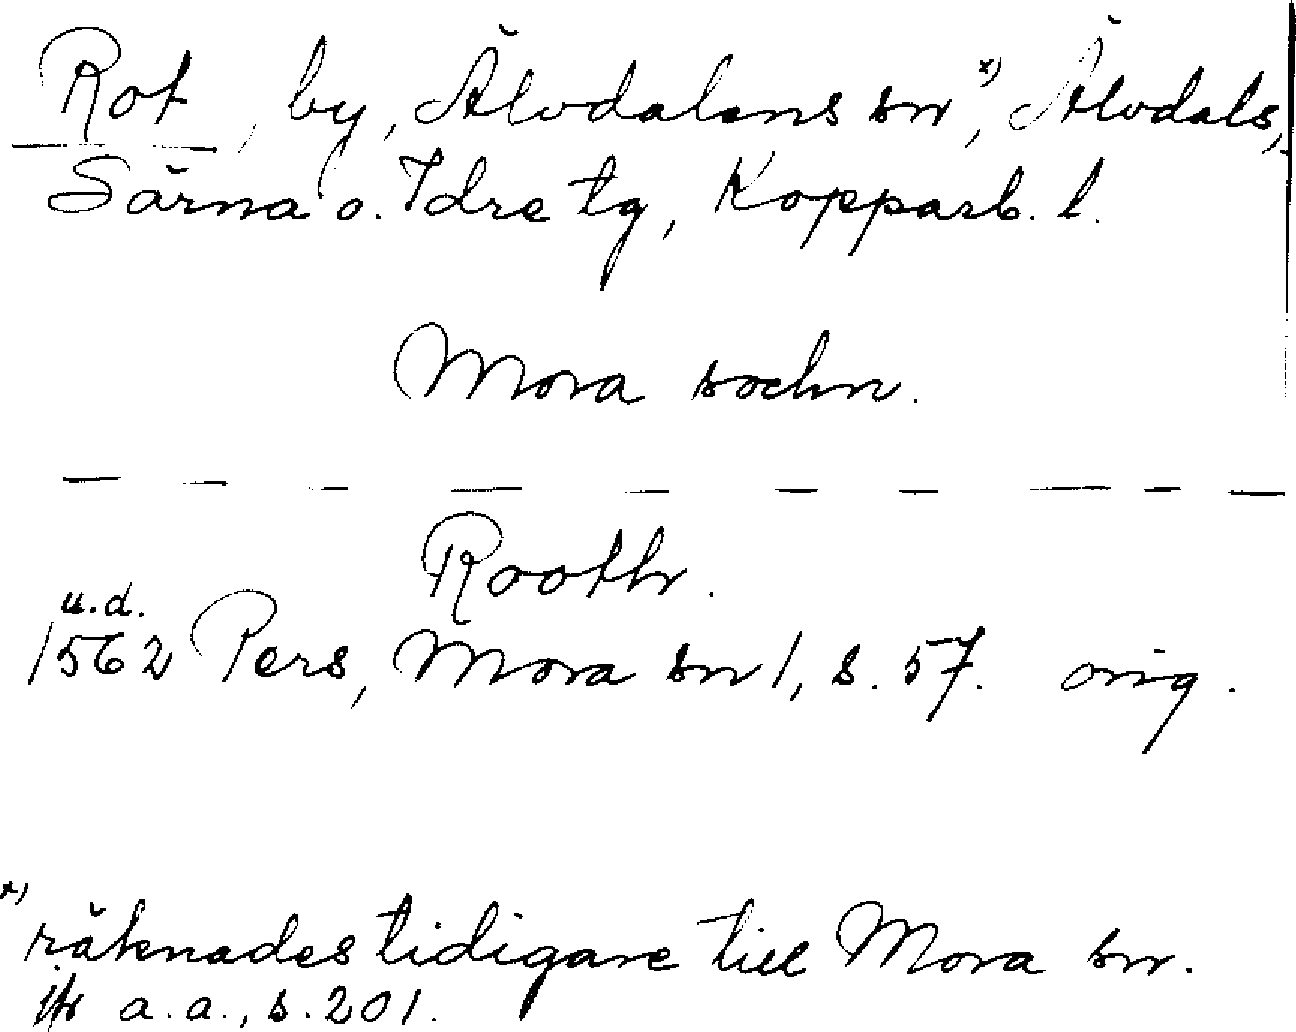 Rot, by, Älvdalens sn x), Älvdals,
Särna o. Idre tg, Kopparb. l.
Mora sochn.
— — — — — — — — — —
Rooth.
u.d.
1562 Pers, Mora sn 1, s. 57. orig.
x) räknades tidigare till Mora sn.
jfr a.a., s. 201.